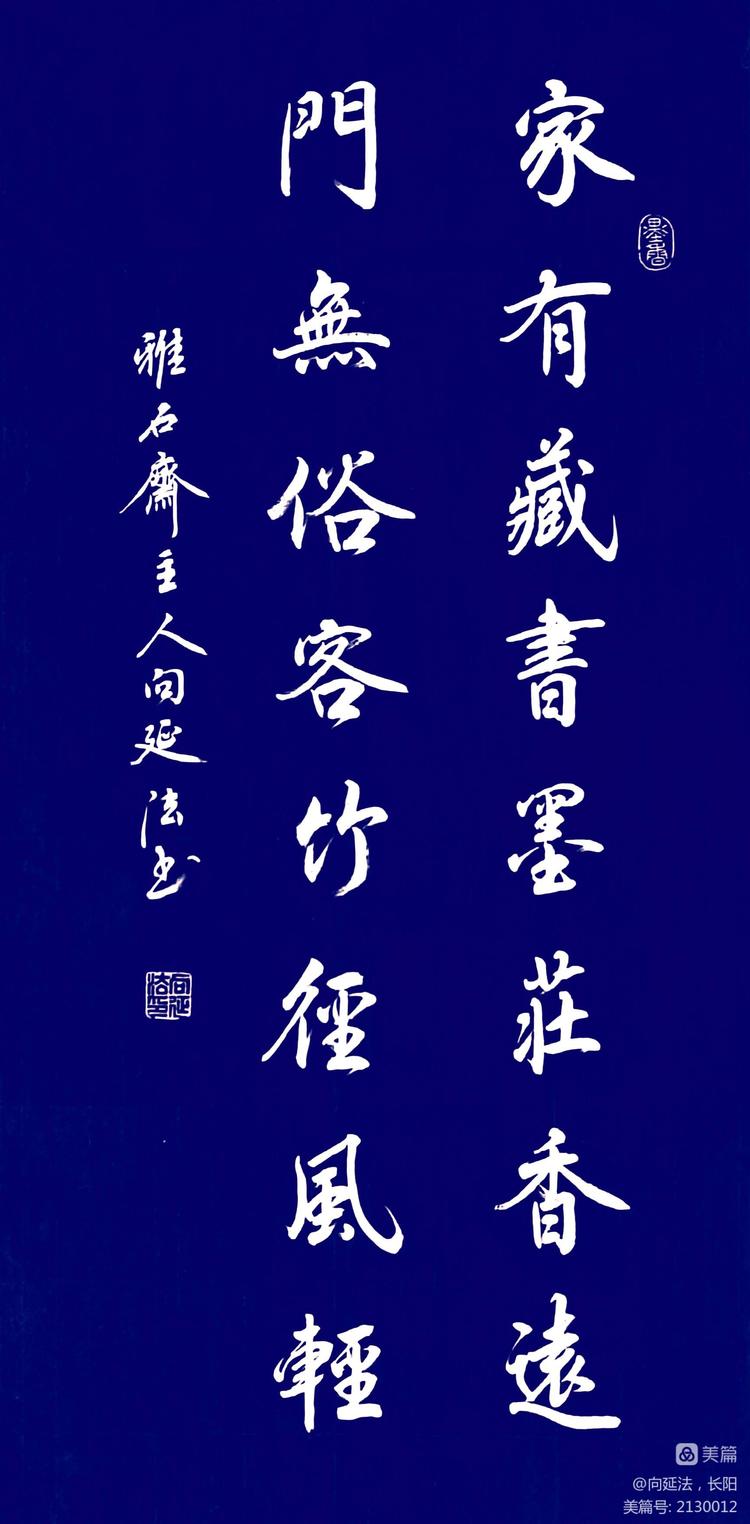 家有藏書墨莊香遠
墨香
門無俗客竹徑風輕
雅石齋主人向延法书
向延法印
美篇
@向延法，长阳
美篇号: 2130012